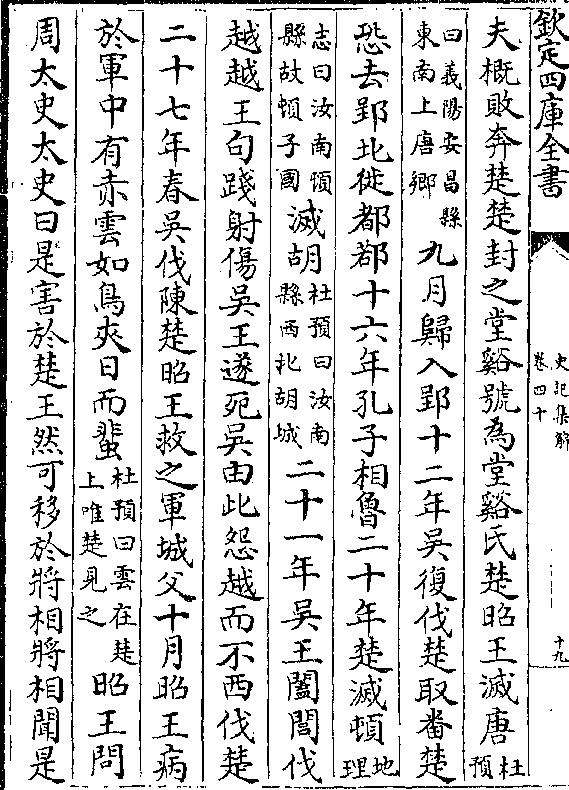 欽定四庫全書
史記集解
卷四十
十九
夫概敗奔楚楚封之堂谿號為堂谿氏楚昭王滅唐杜預
曰義陽安昌縣東南上唐鄉九月歸入郢十二年吳復伐楚取番楚
恐去郢北徙都鄀十六年孔子相魯二十年楚滅頓地理
志曰汝南頓縣故頓子國滅胡杜預曰汝南縣西北胡城二十一年吳王闔閭伐
越越王句踐射傷吳王遂死吳由此怨越而不西伐楚
二十七年春吳伐陳楚昭王救之軍城父十月昭王病
於軍中有赤雲如鳥夾日而蜚杜預曰雲在楚上唯楚見之昭王問
周太史太史曰是害於楚王然可移於將相將相聞是